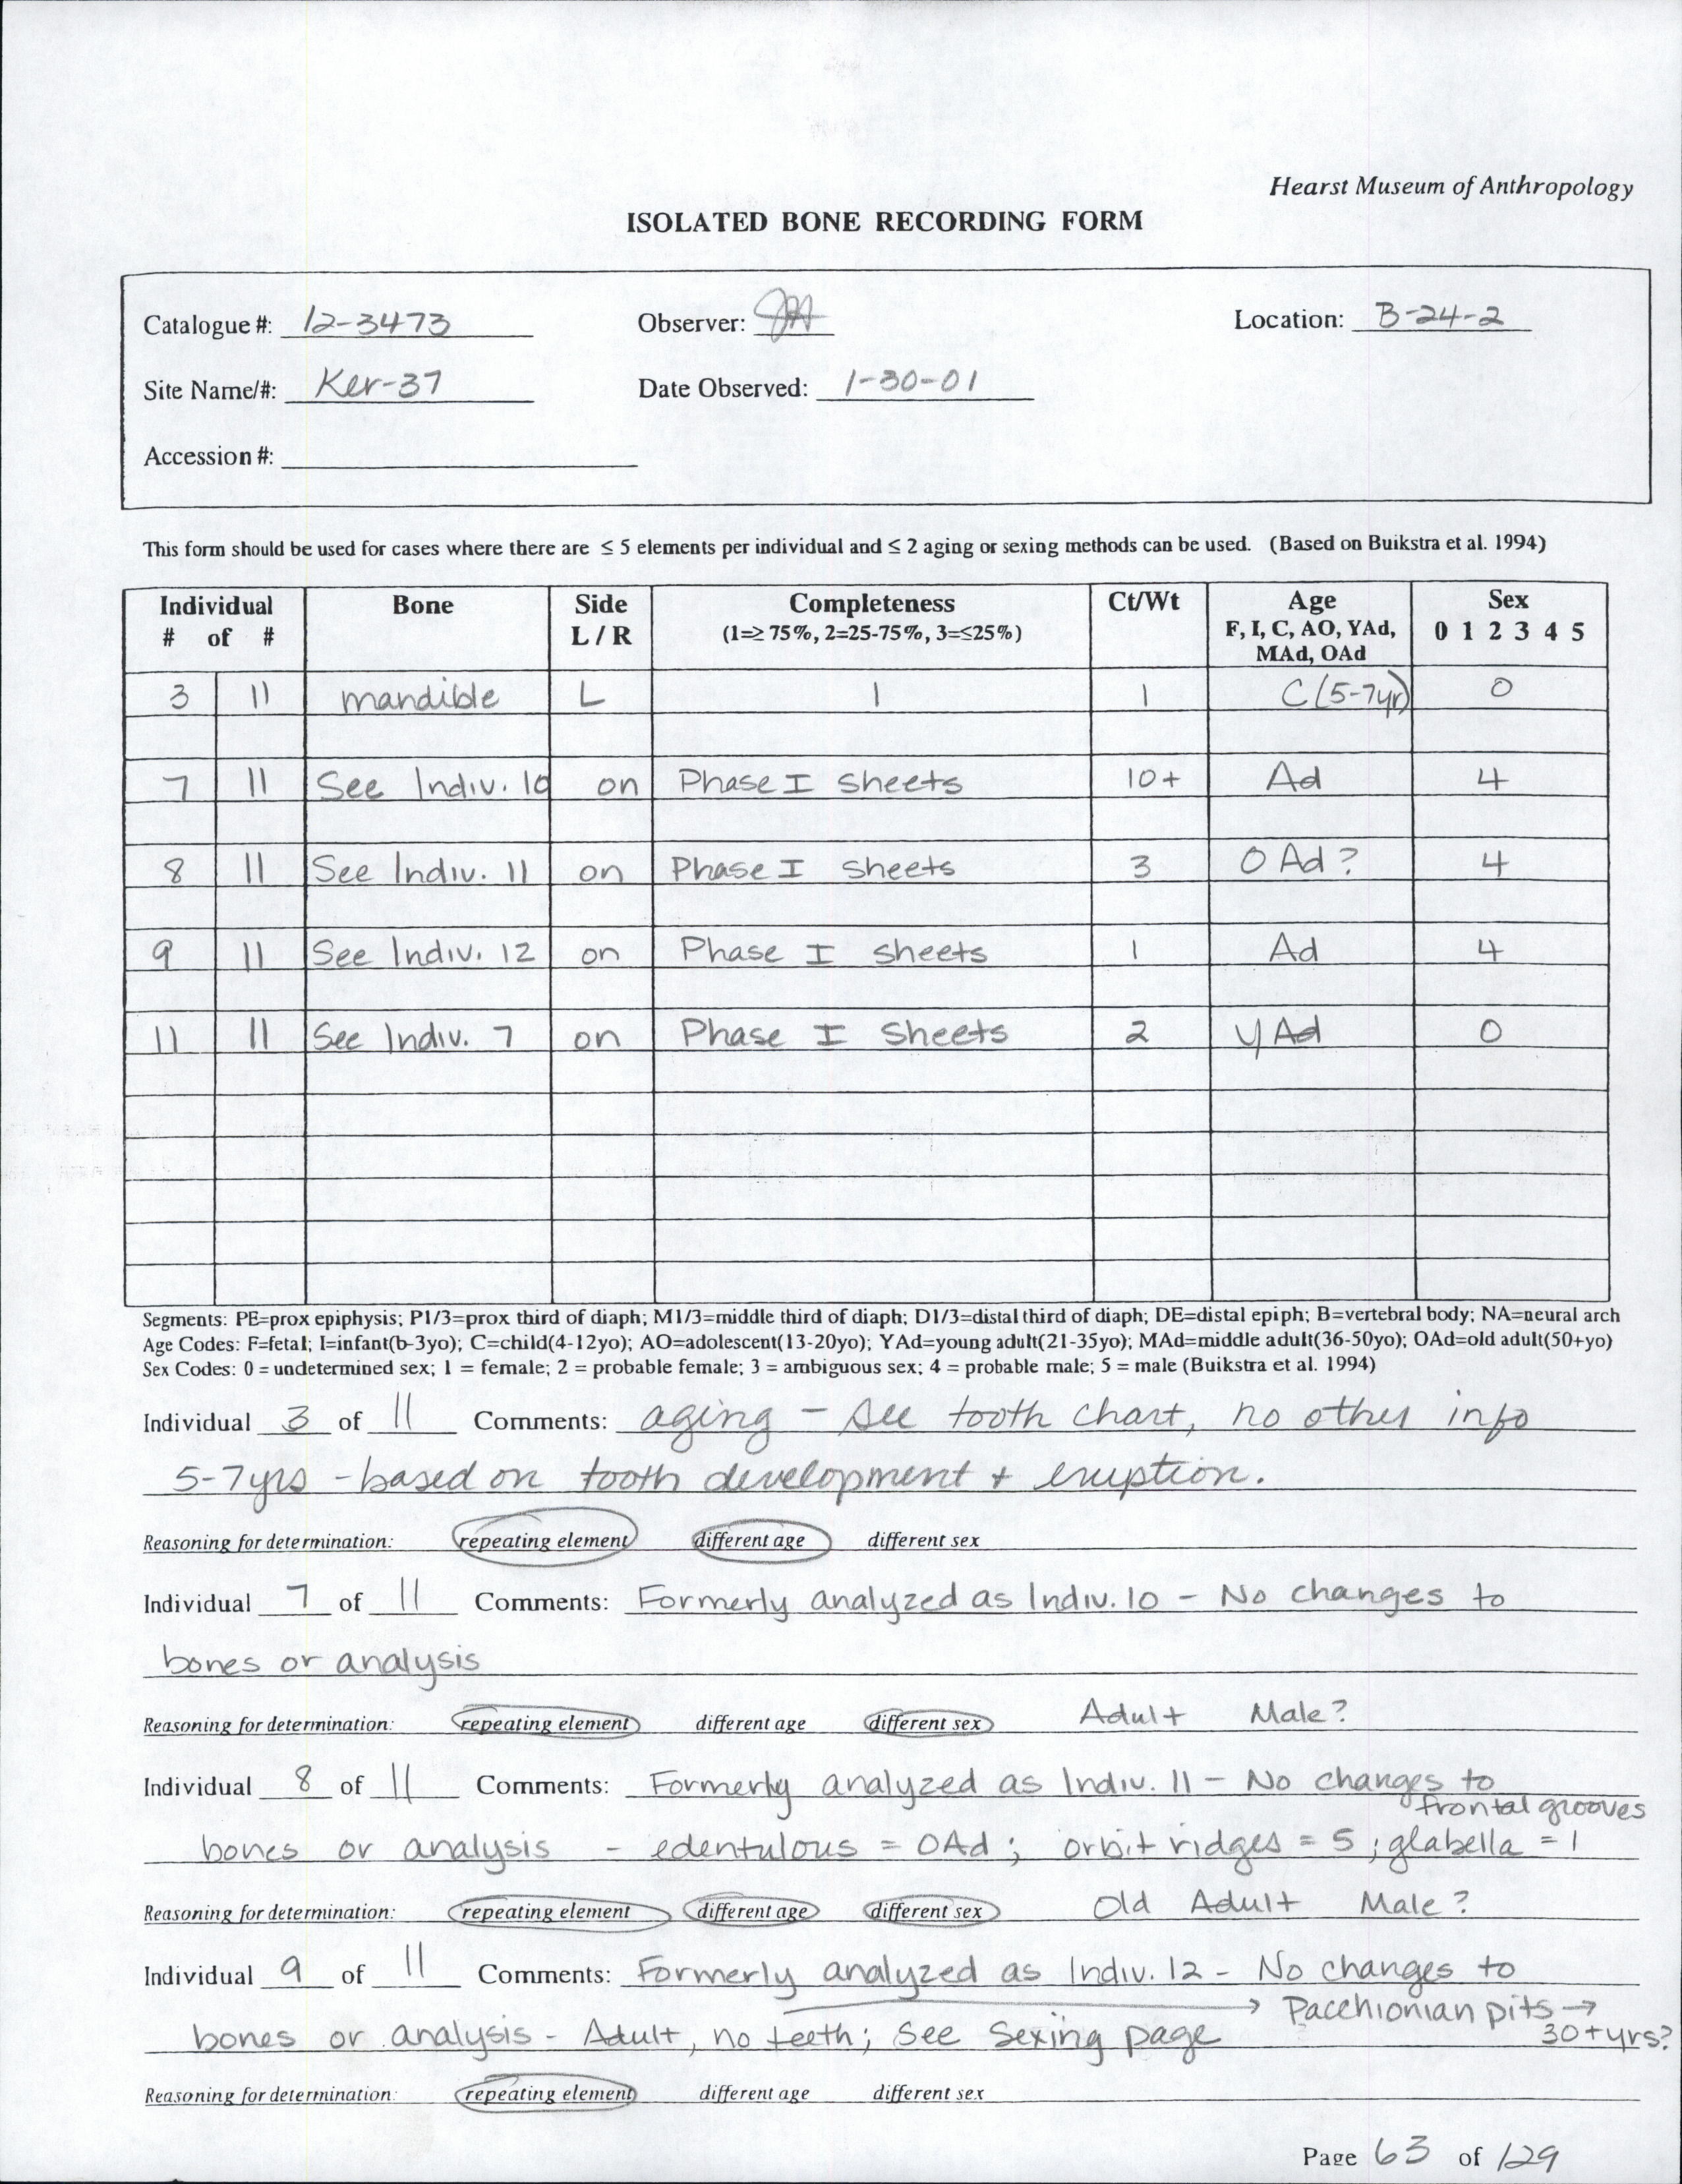 Hearst Museum of Anthropology
ISOLATED BONE RECORDING FORM
Catalogue #: 12-3473 Observer: JA Location: B-24-2
Site Name/#: Ker-37 Date Observed: 1-30-01
Accession #:
This form should be used for cases where there are ≤ 5 elements per individual and ≤ 2 aging or sexing methods can be used. (Based on Buikstra et al. 1994)
Individual Bone Side Completeness Ct/Wt Age Sex
# of # L / R (1=≥ 75%, 2=25-75%, 3=≤25%) F, I, C, AO, YAd, 0 1 2 3 4 5
MAd, OAd
3 11 mandible L 1 1 C (5-7yr) 0
7 11 See Indiv. 10 on Phase I sheets 10+ Ad 4
8 11 See Indiv. 11 on Phase I sheets 3 O Ad? 4
9 11 See Indiv. 12 on Phase I sheets 1 Ad 4
11 11 See Indiv. 7 on Phase I Sheets 2 Y Ad 0
Segments: PE=prox epiphysis; P1/3=prox third of diaph; M1/3=middle third of diaph; D1/3=distal third of diaph; DE=distal epiph; B=vertebral body; NA=neural arch
Age Codes: F=fetal; I=infant(b-3yo); C=child(4-12yo); AO=adolescent(13-20yo); YAd=young adult(21-35yo); MAd=middle adult(36-50yo); OAd=old adult(50+yo)
Sex Codes: 0 = undetermined sex; 1 = female; 2 = probable female; 3 = ambiguous sex; 4 = probable male; 5 = male (Buikstra et al. 1994)
Individual 3 of 11 Comments: aging - see tooth chart, no other info
5-7yrs - based on tooth development + eruption.
Reasoning for determination: repeating element different age different sex
Individual 7 of 11 Comments: Formerly analyzed as Indiv. 10 - No changes to
bones or analysis
Reasoning for determination: repeating element different age different sex Adult Male?
Individual 8 of 11 Comments: Formerly analyzed as Indiv. 11 - No changes to
frontal grooves
bones or analysis - edentulous = OAd; orbit ridges = 5; glabella = 1
Reasoning for determination: repeating element different age different sex Old Adult Male?
Individual 9 of 11 Comments: Formerly analyzed as Indiv. 12 - No changes to
→ Pacchionian pits →
bones or analysis - Adult, no teeth; See Sexing page 30+yrs?
Reasoning for determination: repeating element different age different sex
Page 63 of 129